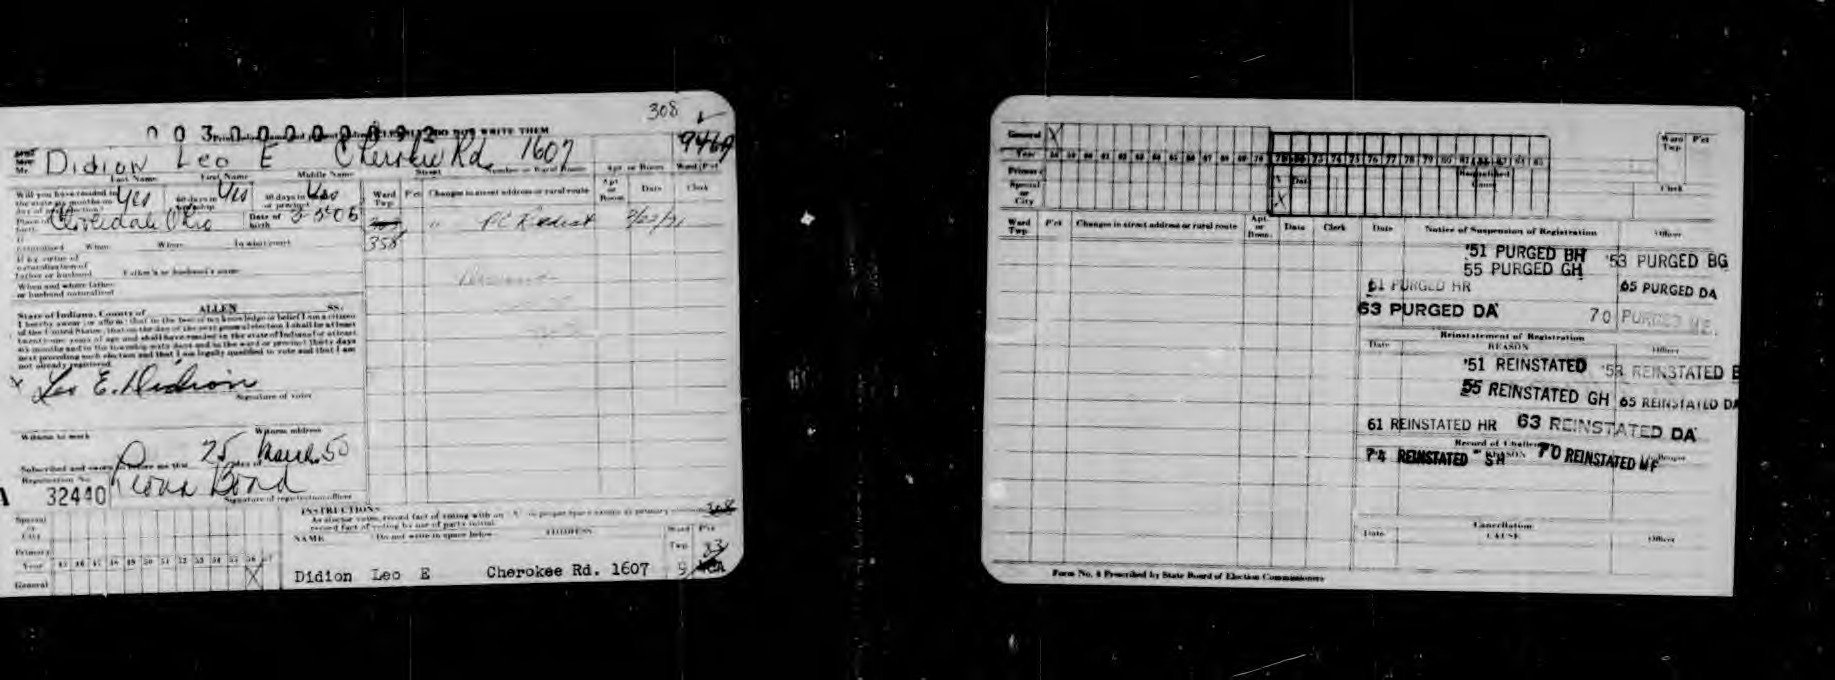 308 ✓
0 0 3 0 0 0 0 0 0 9 2 DO NOT WRITE THEM
9469
Mr. Didion Leo E Cherokee Rd. 1607
Last Name First Name Middle Name Street Number or Rural Route Apt. or Room Ward Pct
Will you have resided in the state six months on day of next election? Yes 60 days in township Yes 30 days in precinct Yes
Ward Twp. Pct Changes in street address or rural route Apt or Room Date Clerk
Place of birth Cloverdale Ohio Date of birth 3-5-06
" PC Redist 3/22/71
358
If naturalized When Where In what court
If by virtue of naturalization of Father or husband Father's or husband's name
When and where father or husband naturalized
State of Indiana, County of ALLEN SS:
I hereby swear (or affirm) that to the best of my knowledge or belief I am a citizen
of the United States; that on the day of the next general election I shall be at least
twenty-one years of age and shall have resided in the state of Indiana for at least
six months and in the township sixty days and in the ward or precinct thirty days
next preceding such election and that I am legally qualified to vote and that I am
not already registered.
X Leo E. Didion
Signature of voter
Witness to mark Witness address
Subscribed and sworn to before me this 25 day of March 50
Registration No.
A 32440 Leona Bond
Signature of registration officer
INSTRUCTIONS
As elector votes, record fact of voting with an "X" in proper space except in primary
record fact of voting by use of party initial.
308
Special or City
Primary
Year 45 46 47 48 49 50 51 52 53 54 55 56 57
General X
NAME (Do not write in space below) ADDRESS Ward Twp. Pct
33
Didion Leo E Cherokee Rd. 1607 9
General X
Year 58 59 60 61 62 63 64 65 66 67 68 69 70 73 74 75 76 77 78 79 80 81 82 83 84 85
Primary
Special or City X
Ward Twp Pct
Clerk
Ward Twp. Pct Changes in street address or rural route Apt. or Room Date Clerk Date Notice of Suspension of Registration Officer
'51 PURGED BH '53 PURGED BG
55 PURGED GH
61 PURGED HR 65 PURGED DA
63 PURGED DA 70 PURGED
Reinstatement of Registration
Date REASON Officer
'51 REINSTATED '53 REINSTATED B
55 REINSTATED GH 65 REINSTATED DA
61 REINSTATED HR 63 REINSTATED DA
Record of Challenge
74 REINSTATED SH REASON 70 REINSTATED MF
Cancellation
Date CAUSE Officer
Form No. 8 Prescribed by State Board of Election Commissioners